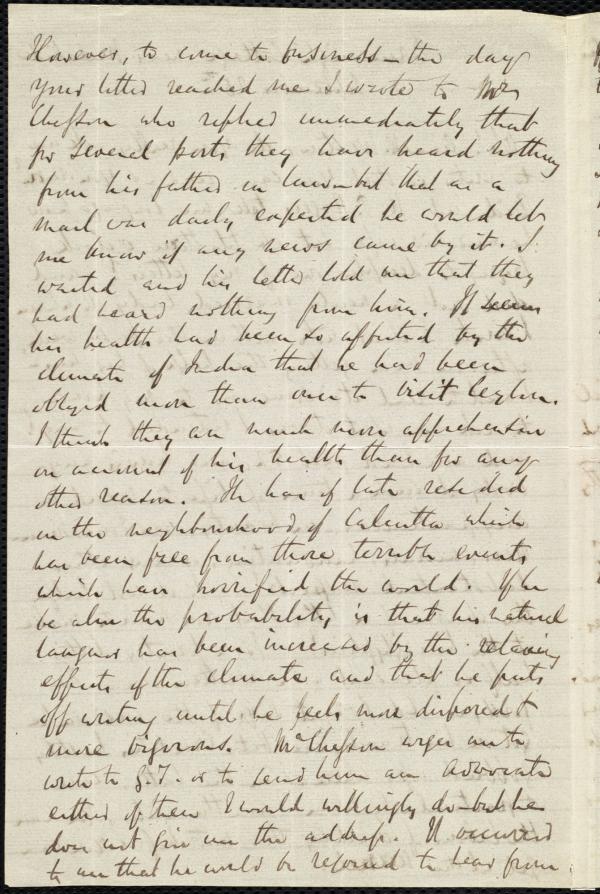 However, to come to business – the day
your letter reached me I wrote to Mr
Chesson who replied immediately that
for several posts they have heard nothing
from his father in law – but that as a
mail was daily expected he would let
me know if any news came by it. I
waited and his letter told me that they
had heard nothing from him. It seems
his health had been so affected by the
climate of India that he had been
obliged more than once to visit Ceylon.
I think they are much more apprehensive
on account of his health than for any
other reason. He has of late resided
in the neighbourhood of Calcutta which
has been free from those terrible events
which have horrified the world. If he
be alive the probability is that his natural
languor has been increased by the relaxing
effects of the climate and that he puts
off writing until he feels more disposed &
more vigorous. Mr Chesson urges me to
write to G.T. or to send him an Advocate
either of these I would willingly do – but he
does not give me the address. It occurred
to me that he would be rejoiced to hear from